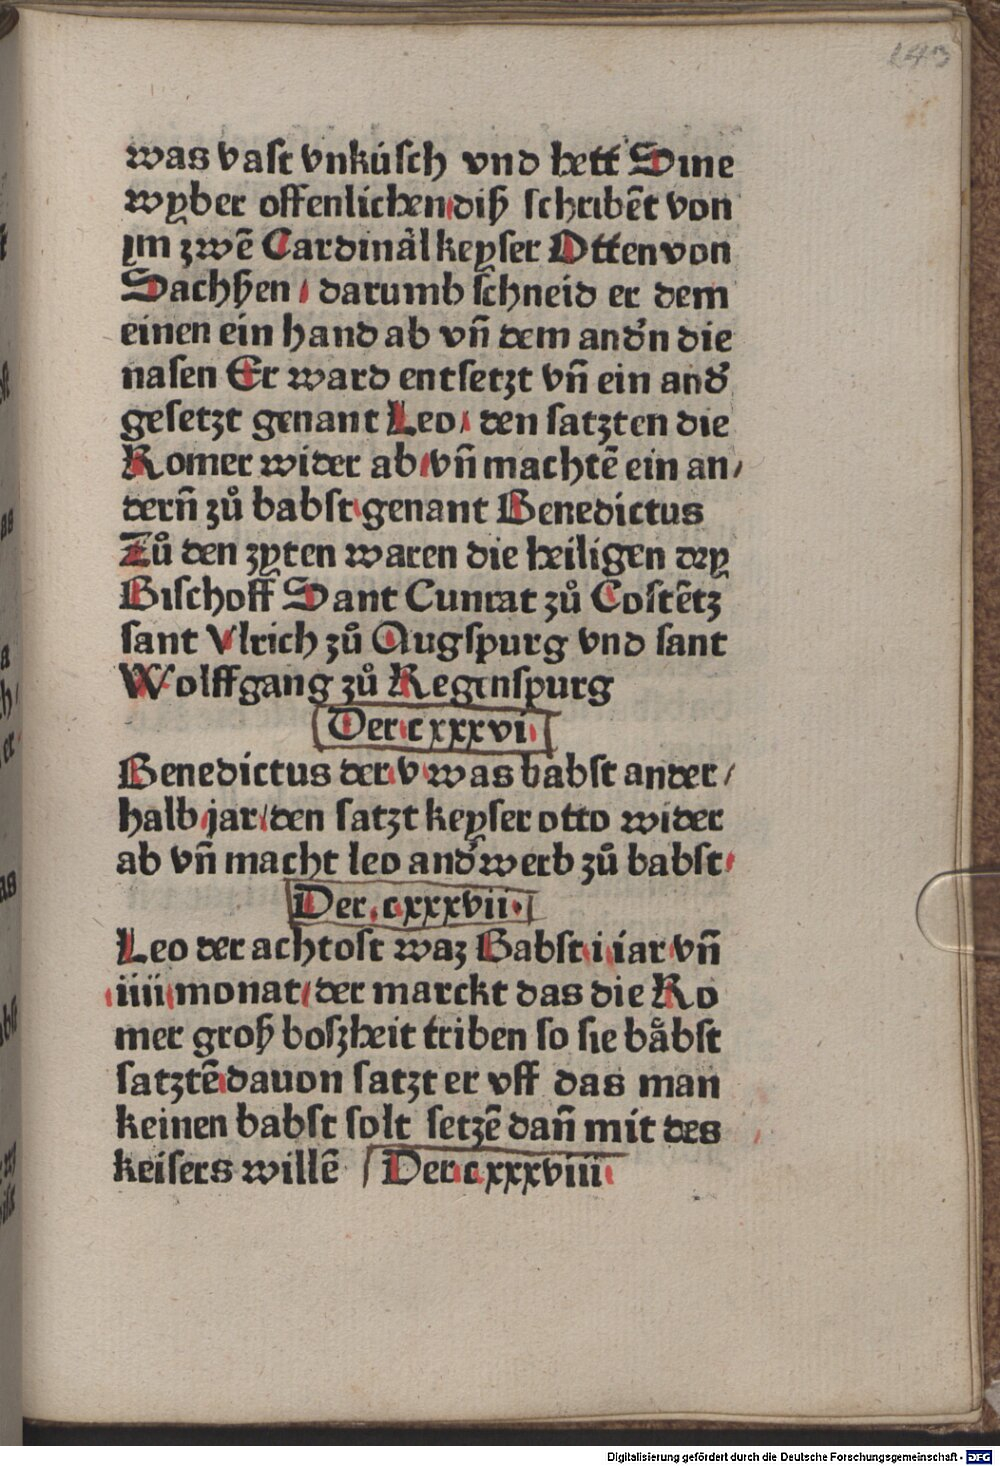 143
was vaſt vnkúſch vnd hett Sine
wyber offenlichen diß ſchribēt von
im zwē Cardinål keyſer Otten von
Sachßen / darumb ſchneid er dem
einen ein hand ab vñ dem andˀn die
naſen Er ward entſetzt vñ ein andˀ
geſetzt genant Leo / den ſatzten die
Romer wider ab / vñ machtē ein an/
derñ zů babſt genant Benedictus
Zů den zyten waren die heiligen dry
Biſchoff Sant Cunrat zů Coſtētz
ſant Vlrich zů Augſpurg vnd ſant
Wolffgang zů Regenſpurg
Der cxxxvi
Benedictus der v was babſt ander/
halb jar / den ſatzt keyſer otto wider
ab vñ macht leo andˀwerb zů babſt
Der. cxxxvii.
Leo der achtoſt waz Babſt i iar vñ
iiii monat / der marckt das die Ro
mer groß boſzheit triben ſo ſie båbſt
ſatztē dauon ſatzt er vff das man
keinen babſt ſolt ſetzē dañ mit des
keiſers willē Der cxxxviii
Digitalisierung gefördert durch die Deutsche Forschungsgemeinschaft - DFG